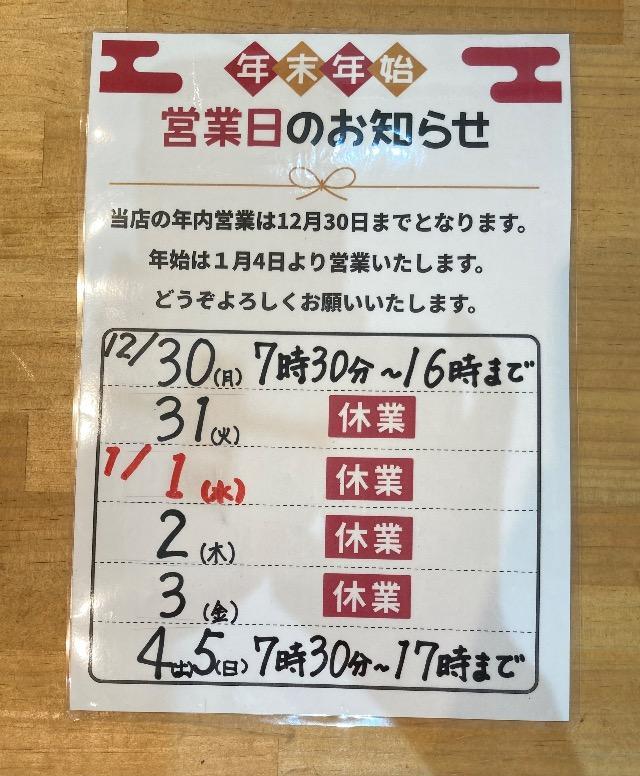 年末年始
営業日のお知らせ
当店の年内営業は12月30日までとなります。
年始は１月4日より営業いたします。
どうぞよろしくお願いいたします。
12/30(月) 7時30分~16時まで
31(火) 休業
1/1(水) 休業
2(木) 休業
3(金) 休業
4(土)5(日) 7時30分~17時まで